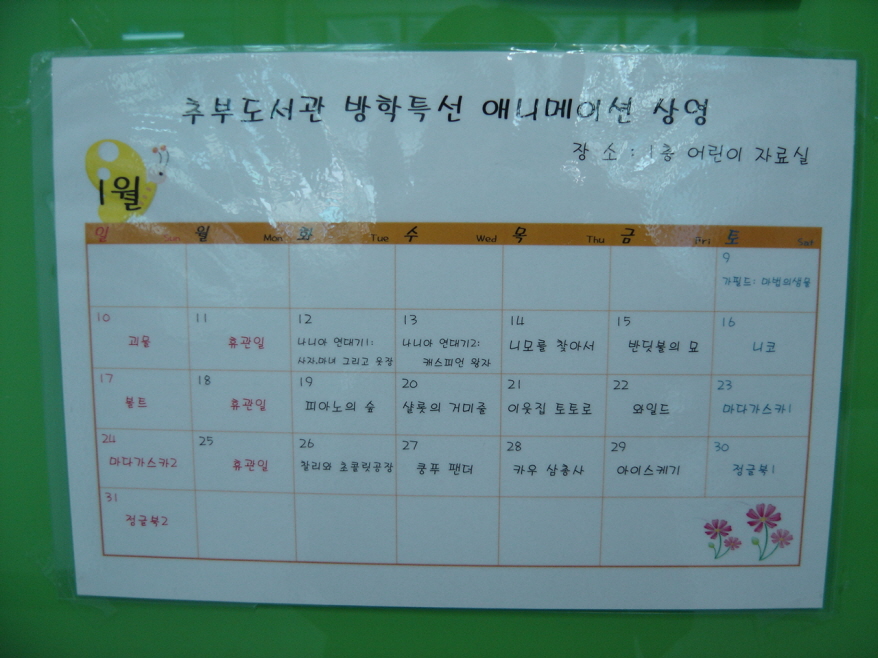 추부도서관 방학특선 애니메이션 상영
장 소 : 1층 어린이 자료실
1월
일 Sun 월 Mon 화 Tue 수 Wed 목 Thu 금 Fri 토 Sat
9
가필드: 마법의샘물
10 11 12 13 14 15 16
괴물 휴관일 나니아 연대기1: 나니아 연대기2: 니모를 찾아서 반딧불의 묘 니코
사자,마녀 그리고 옷장 캐스피언 왕자
17 18 19 20 21 22 23
볼트 휴관일 피아노의 숲 샬롯의 거미줄 이웃집 토토로 와일드 마다가스카1
24 25 26 27 28 29 30
마다가스카2 휴관일 찰리와 초콜릿공장 쿵푸 팬더 카우 삼총사 아이스케키 정글북1
31
정글북2